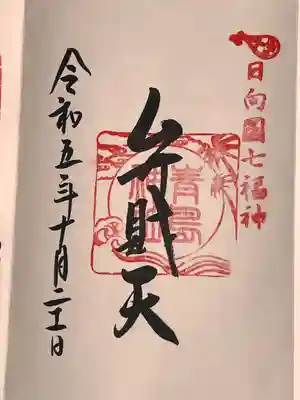 日向國七福神
青島神社
弁財天
令和五年十月二十一日